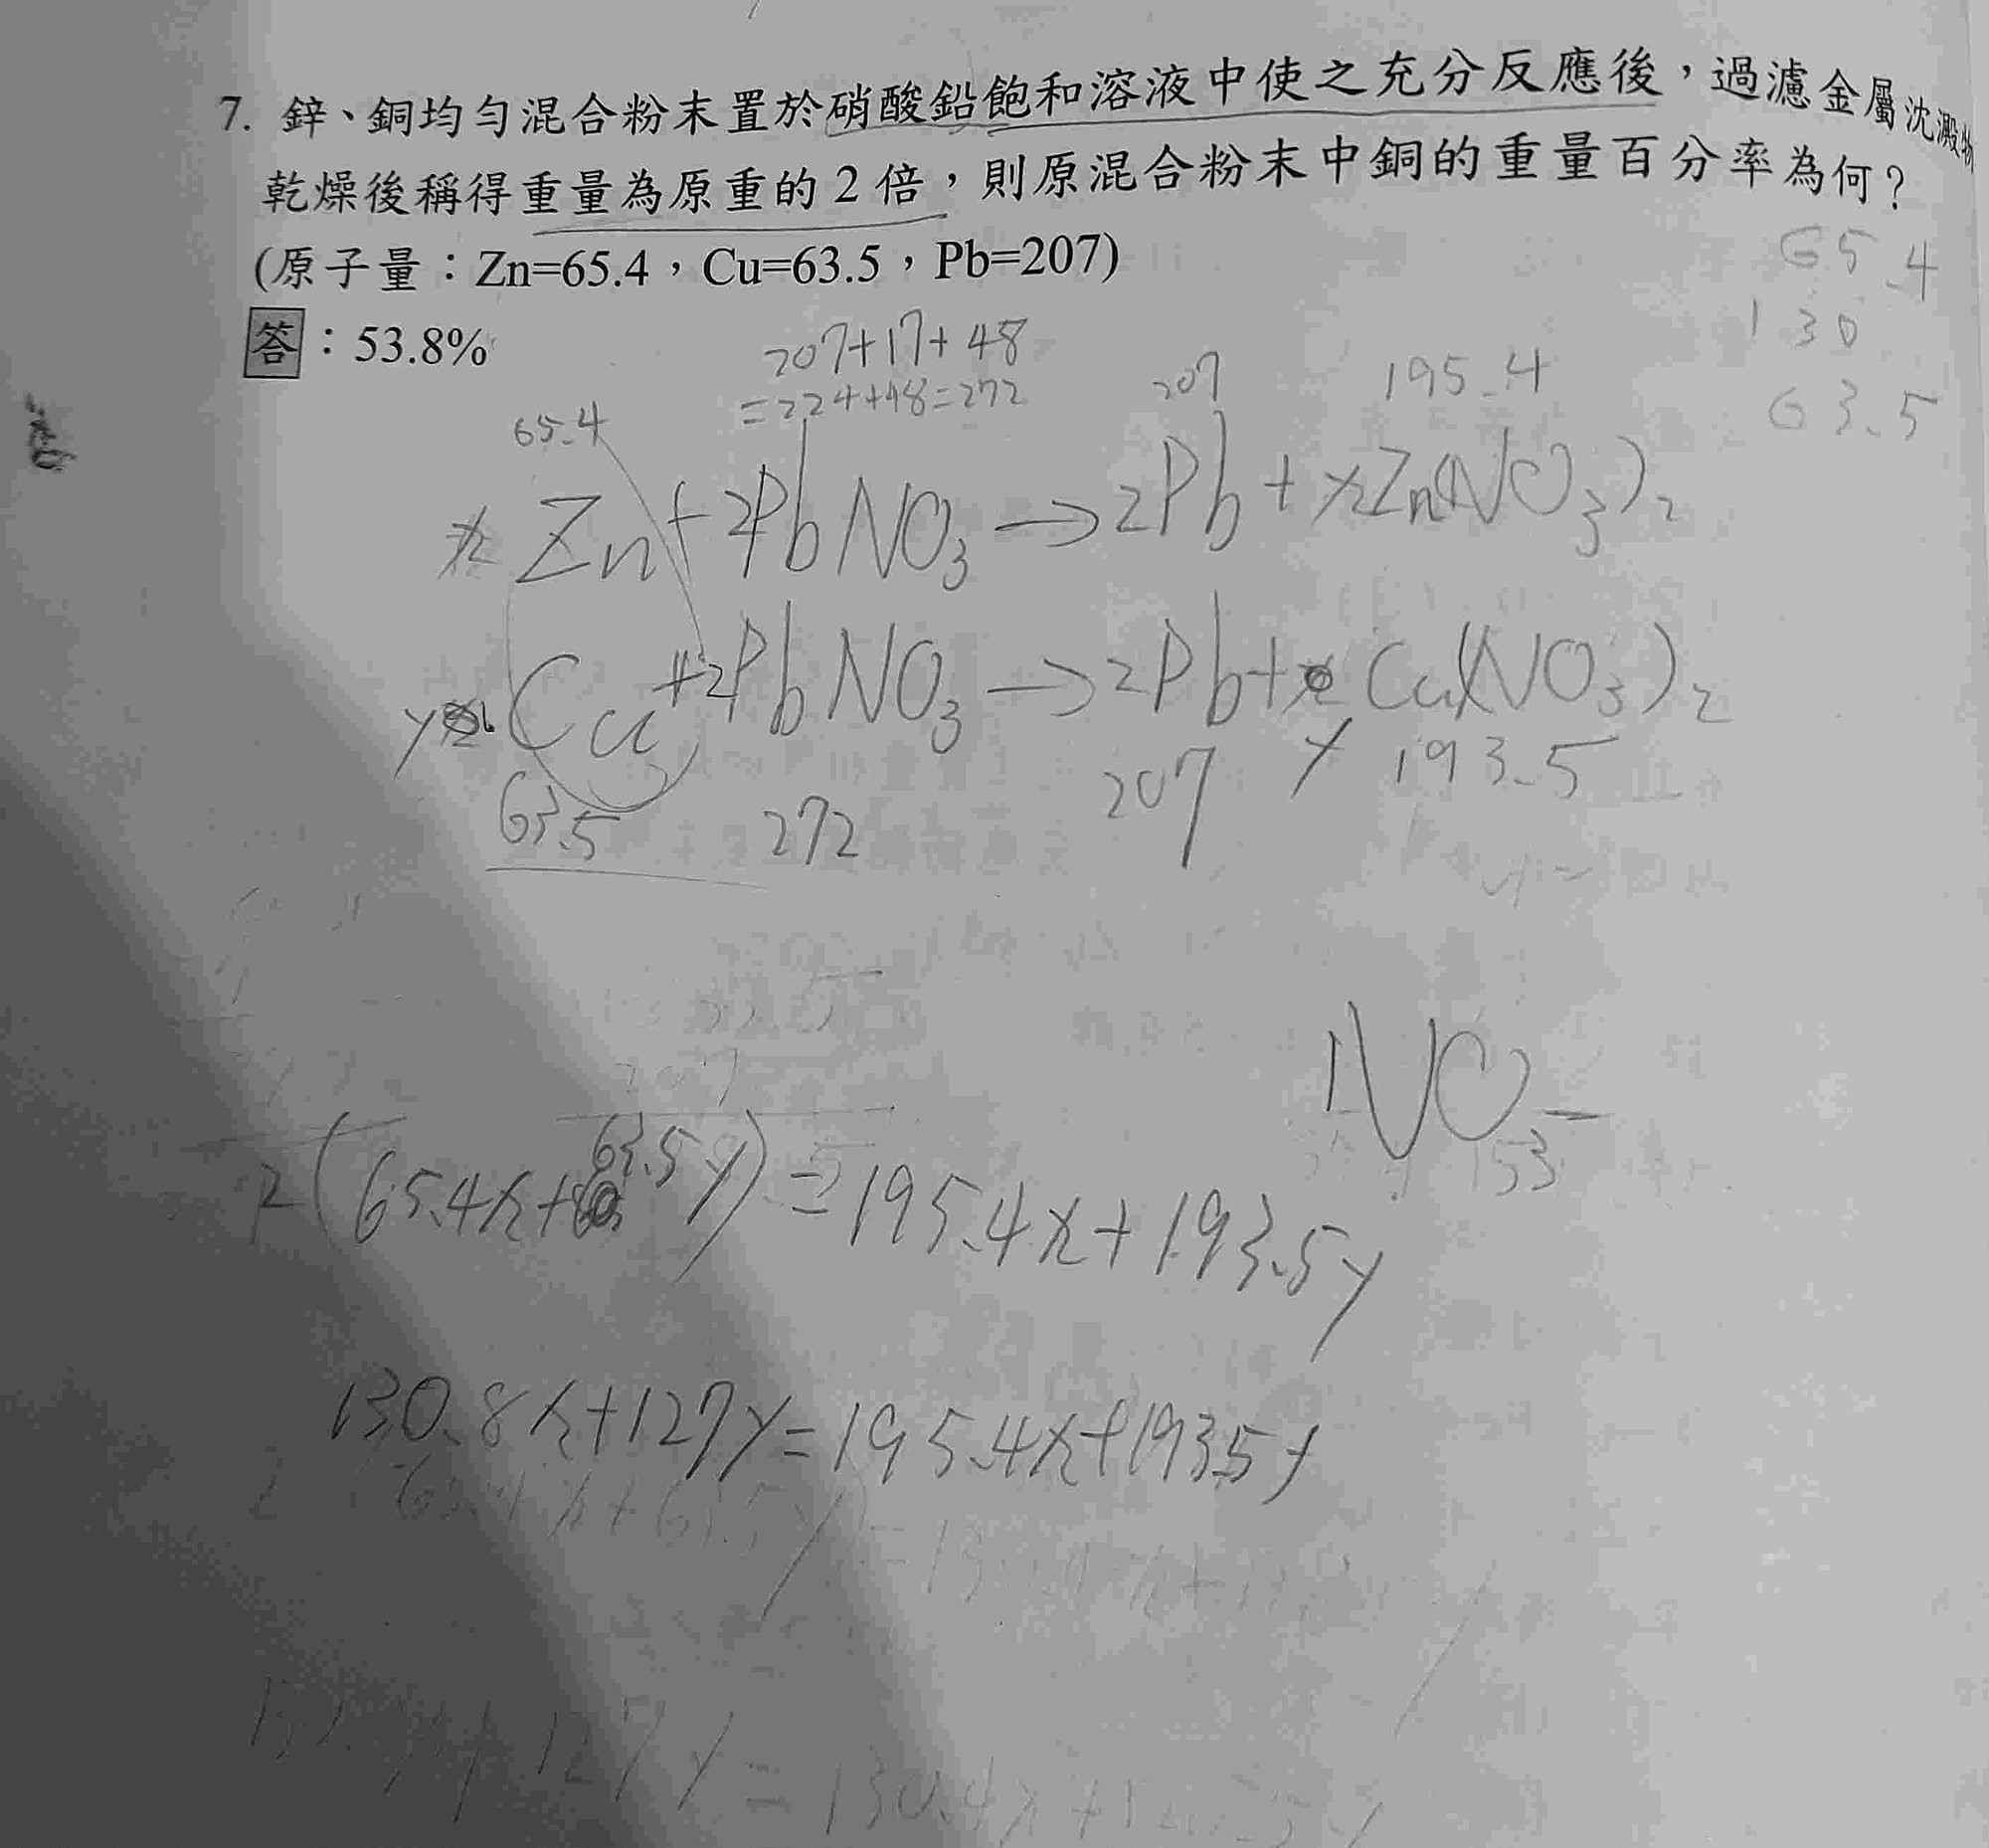 7. 鋅、銅均勻混合粉末置於硝酸鉛飽和溶液中使之充分反應後，過濾金屬沈澱物
乾燥後稱得重量為原重的2倍，則原混合粉末中銅的重量百分率為何？
(原子量：Zn=65.4，Cu=63.5，Pb=207)
答：53.8%
65.4
130
63.5
207+17+48
=224+48=272
65.4
207
195.4
x Zn+2PbNO3→2Pb+xZn(NO3)2
y Cu+2PbNO3→2Pb+ Cu(NO3)2
y
63.5
272
207
193.5
NO3−
2(65.4x+63.5y)=195.4x+193.5y
130.8x+127y=195.4x+193.5y